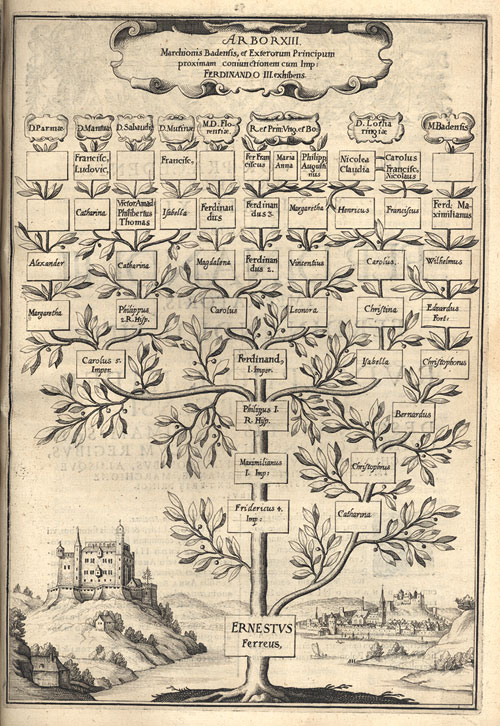 ARBOR XIII.
Marchionis Badensis, et Exterorum Principum
proximam coniunctionem cum Imp:
FERDINANDO III. exhibens.
D. Parmæ
D. Mantuæ
D. Sabaudiæ
D. Mutinæ
M.D. Flo-
rentiæ
R. et Prin: Vng. et Bo:
D. Lotha
ringiæ
M. Badensis
Francisc,
Ludovic,
Francisc,
Fer Fran
ciscus
Maria
Anna
Philipp
Augusti-
nus
Nicolea
Claudia
Carolus
Francisc,
Nicolaus
Catharina
Victor Amad
Philibertus
Thomas
Isabella
Ferdinan
dus
Ferdinan
dus 3.
Margaretha
Henricus
Franciscus
Ferd: Ma-
ximilianus
Alexander
Catharina
Magdalena
Ferdinan
dus 2.
Vincentius
Carolus,
Wilhelmus
Margaretha
Philippus
2. R. Hisp.
Carolus
Leonora
Christina
Eduardus
Fort:
Carolus 5.
Imper.
Ferdinand,
I. Imper.
Isabella
Christophorus
Philippus I.
R. Hisp.
Bernardus
Maximilianus
I. Imp:
Christophorus
Fridericus 4.
Imp:
Catharina
ERNESTVS
Ferreus,